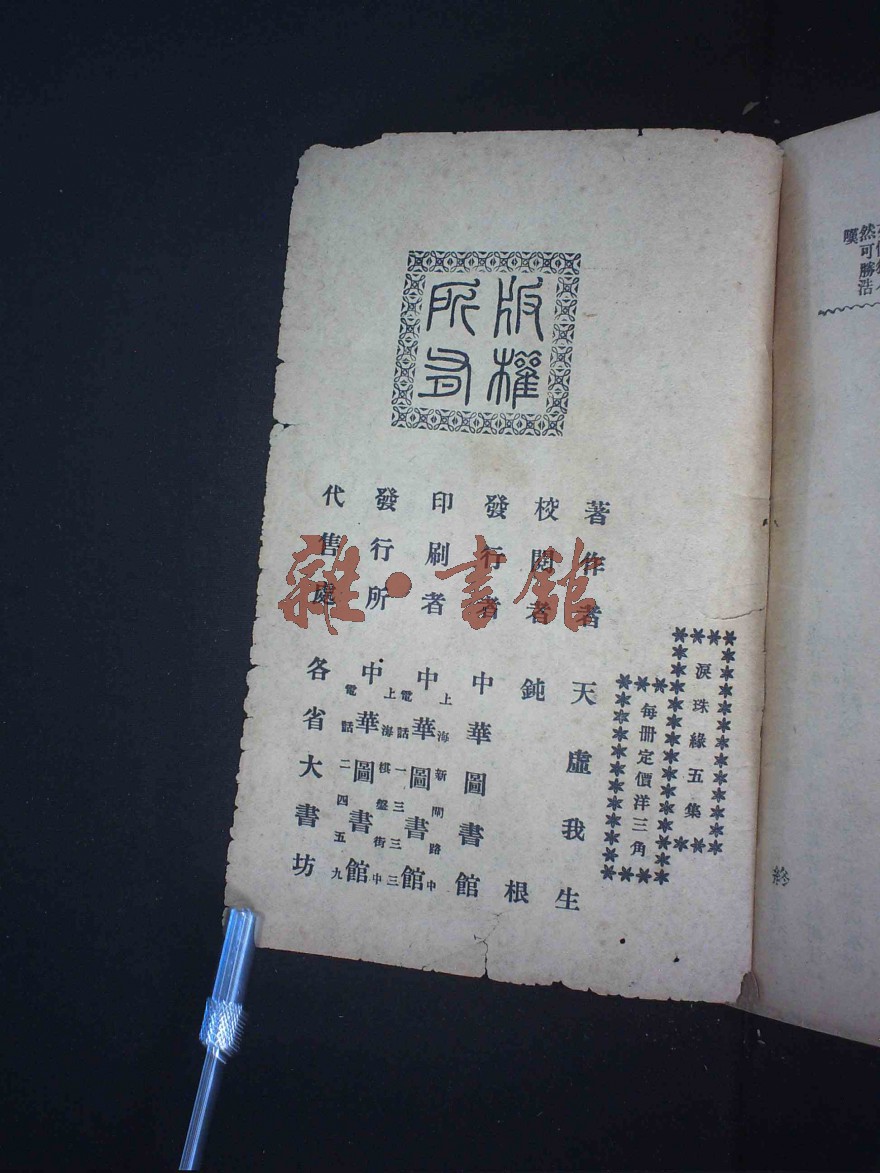 淚珠緣五集
每冊定價洋三角
版權所有
著作者 天虛我生
校閱者 鈍根
發行者 中華圖書館
印刷者 中華圖書館
上海新閘路中
電話一三三三
發行所 中華圖書館
上海棋盤街中
電話二四五九
代售處 各省大書坊
終
雜·書館